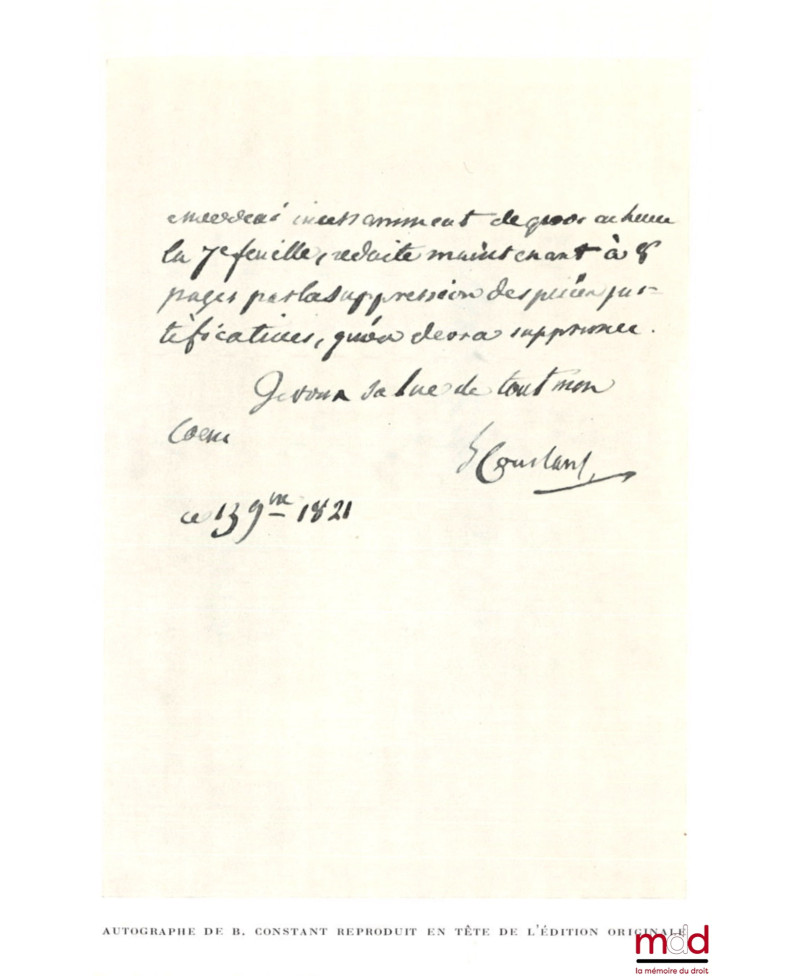 enverrai incessamment de quoi achever
la 7e feuille, reduite maintenant à 8
pages par la suppression des pièces jus-
tificatives, qu'on devra supprimer.
Je vous salue de tout mon
Coeur
B Constant
ce 13 9bre 1821
AUTOGRAPHE DE B. CONSTANT REPRODUIT EN TÊTE DE L'ÉDITION ORIGINALE
mdd
la mémoire du droit